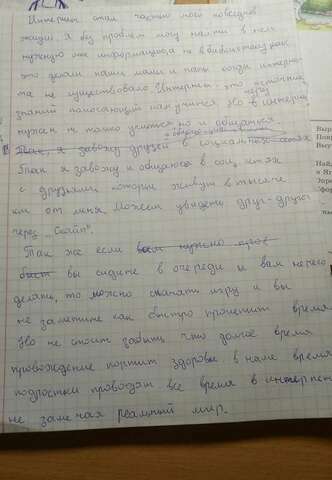 Интернет стал частью моей повседнев
жизни. Я без проблем могу найти в нём
нужную мне информацию, а не в библиотеку, как
это делали наши мамы и папы когда интерне-
та не существовало. Интернет- это источник
знаний помогающий нам учится. Но через
интернет
нужен не только учиться, но и общаться
Так, я завожу друзей в социал
Так я завожу и общаюся в соц. сетях
с друзьями, которые живут в тысяче
км от меня. Можем увидеть друг-друга
через „Скайп".
Так же если вам нужно
вы сидите в очереди и вам нечего
делать, то можно скачать игру и вы
не заметите как быстро пролетит время
Но не стоит забыть что долгое время
провождение портит здоровье в наше время
подростки проводят все время в интернет
не замечая реальный мир.